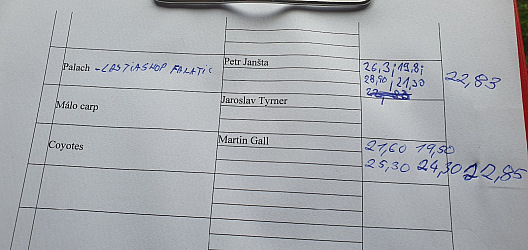 Palach - LASTIASHOP FALATIC Petr Janšta 26,3; 19,8;
28,90; 21,30 22,83
Málo carp Jaroslav Tyrner
Coyotes Martin Gall 21,60 19,50
25,30 24,30 22,85